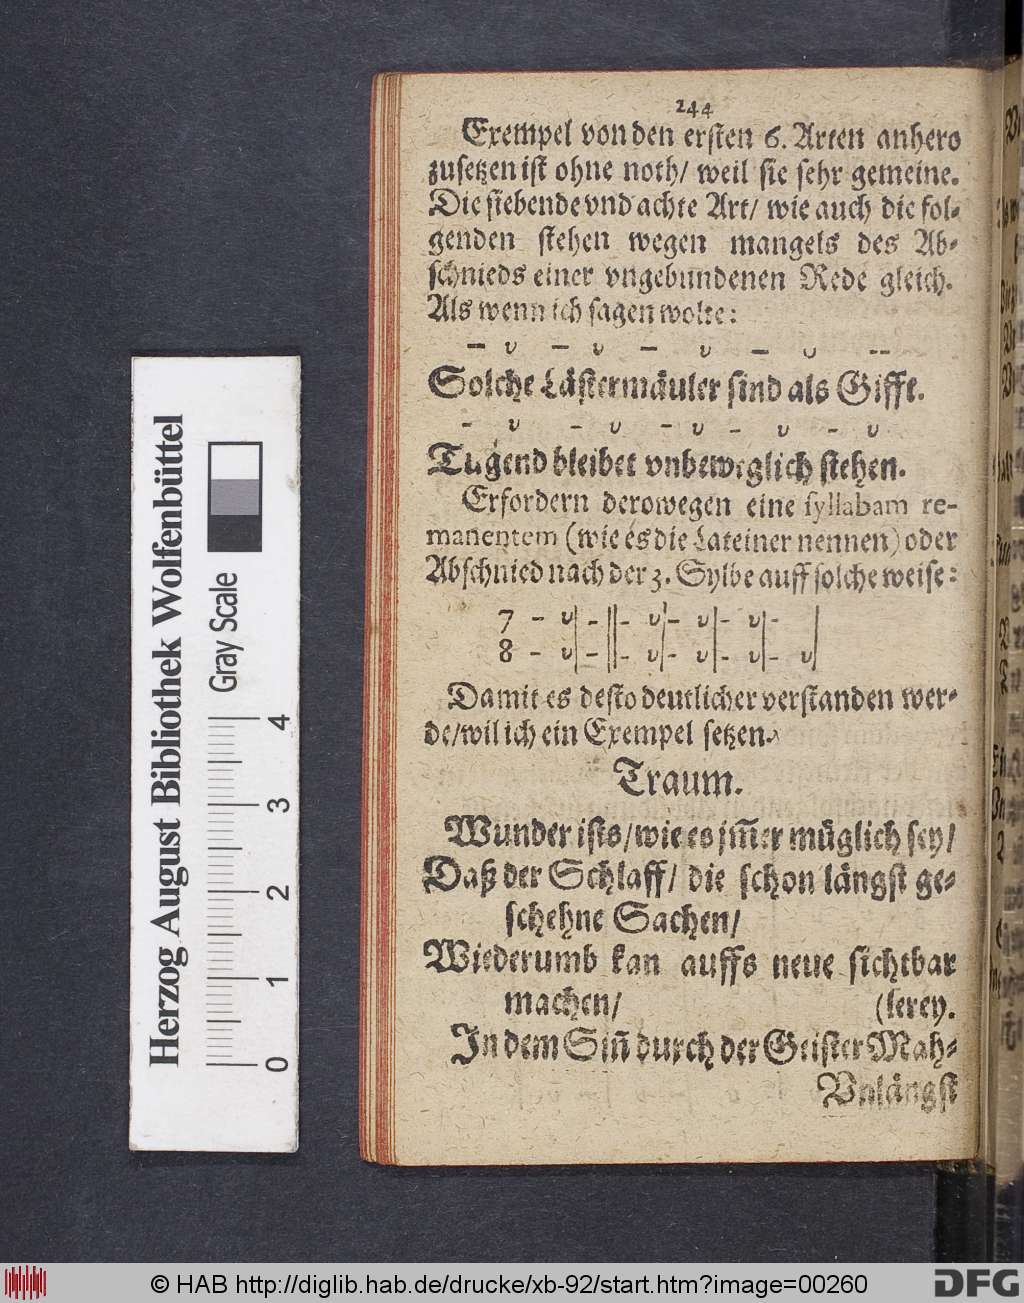 244
Exempel von den ersten 6. Arten anhero
zusetzen ist ohne noth/ weil sie sehr gemeine.
Die siebende vnd achte Art/ wie auch die fol-
genden stehen wegen mangels des Ab-
schnieds einer vngebundenen Rede gleich.
Als wenn ich sagen wolte:
– υ – υ – υ – υ --
Solche Lästermäuler sind als Gifft.
– υ – υ – υ – υ – υ
Tugend bleibet vnbeweglich stehen.
Erfordern derowegen eine syllabam re-
manentem (wie es die Lateiner nennen) oder
Abschnied nach der 3. Sylbe auff solche weise:
7 – υ| – || – υ| – υ| – υ| – |
8 – υ| – || – υ| – υ| – υ| – υ|
Damit es desto deutlicher verstanden wer-
de/wil ich ein Exempel setzen.
Traum.
Wunder ists/wie es jm̃er müglich sey/
Daß der Schlaff/ die schon längst ge-
schehne Sachen/
Wiederumb kan auffs neue sichtbar
machen/ (lerey.
In dem Siñ durch der Geister Mah-
Vnlängst
Herzog August Bibliothek Wolfenbüttel
Gray Scale
0 1 2 3 4
© HAB http://diglib.hab.de/drucke/xb-92/start.htm?image=00260
DFG